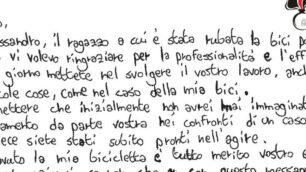 ssandro, il ragazzo a cui è stata rubata la bici
vi volevo ringraziare per la professionalità e l'eff
giorno mettete nel svolgere il vostro lavoro, an
cole cose, come nel caso della mia bici.
mettere che inizialmente non avrei mai immaginat
amento da parte vostra nei confronti di un caso
ece siete stati subito pronti nell'agire.
vato la mia bicicletta è tutto merito vostro e
questo messag